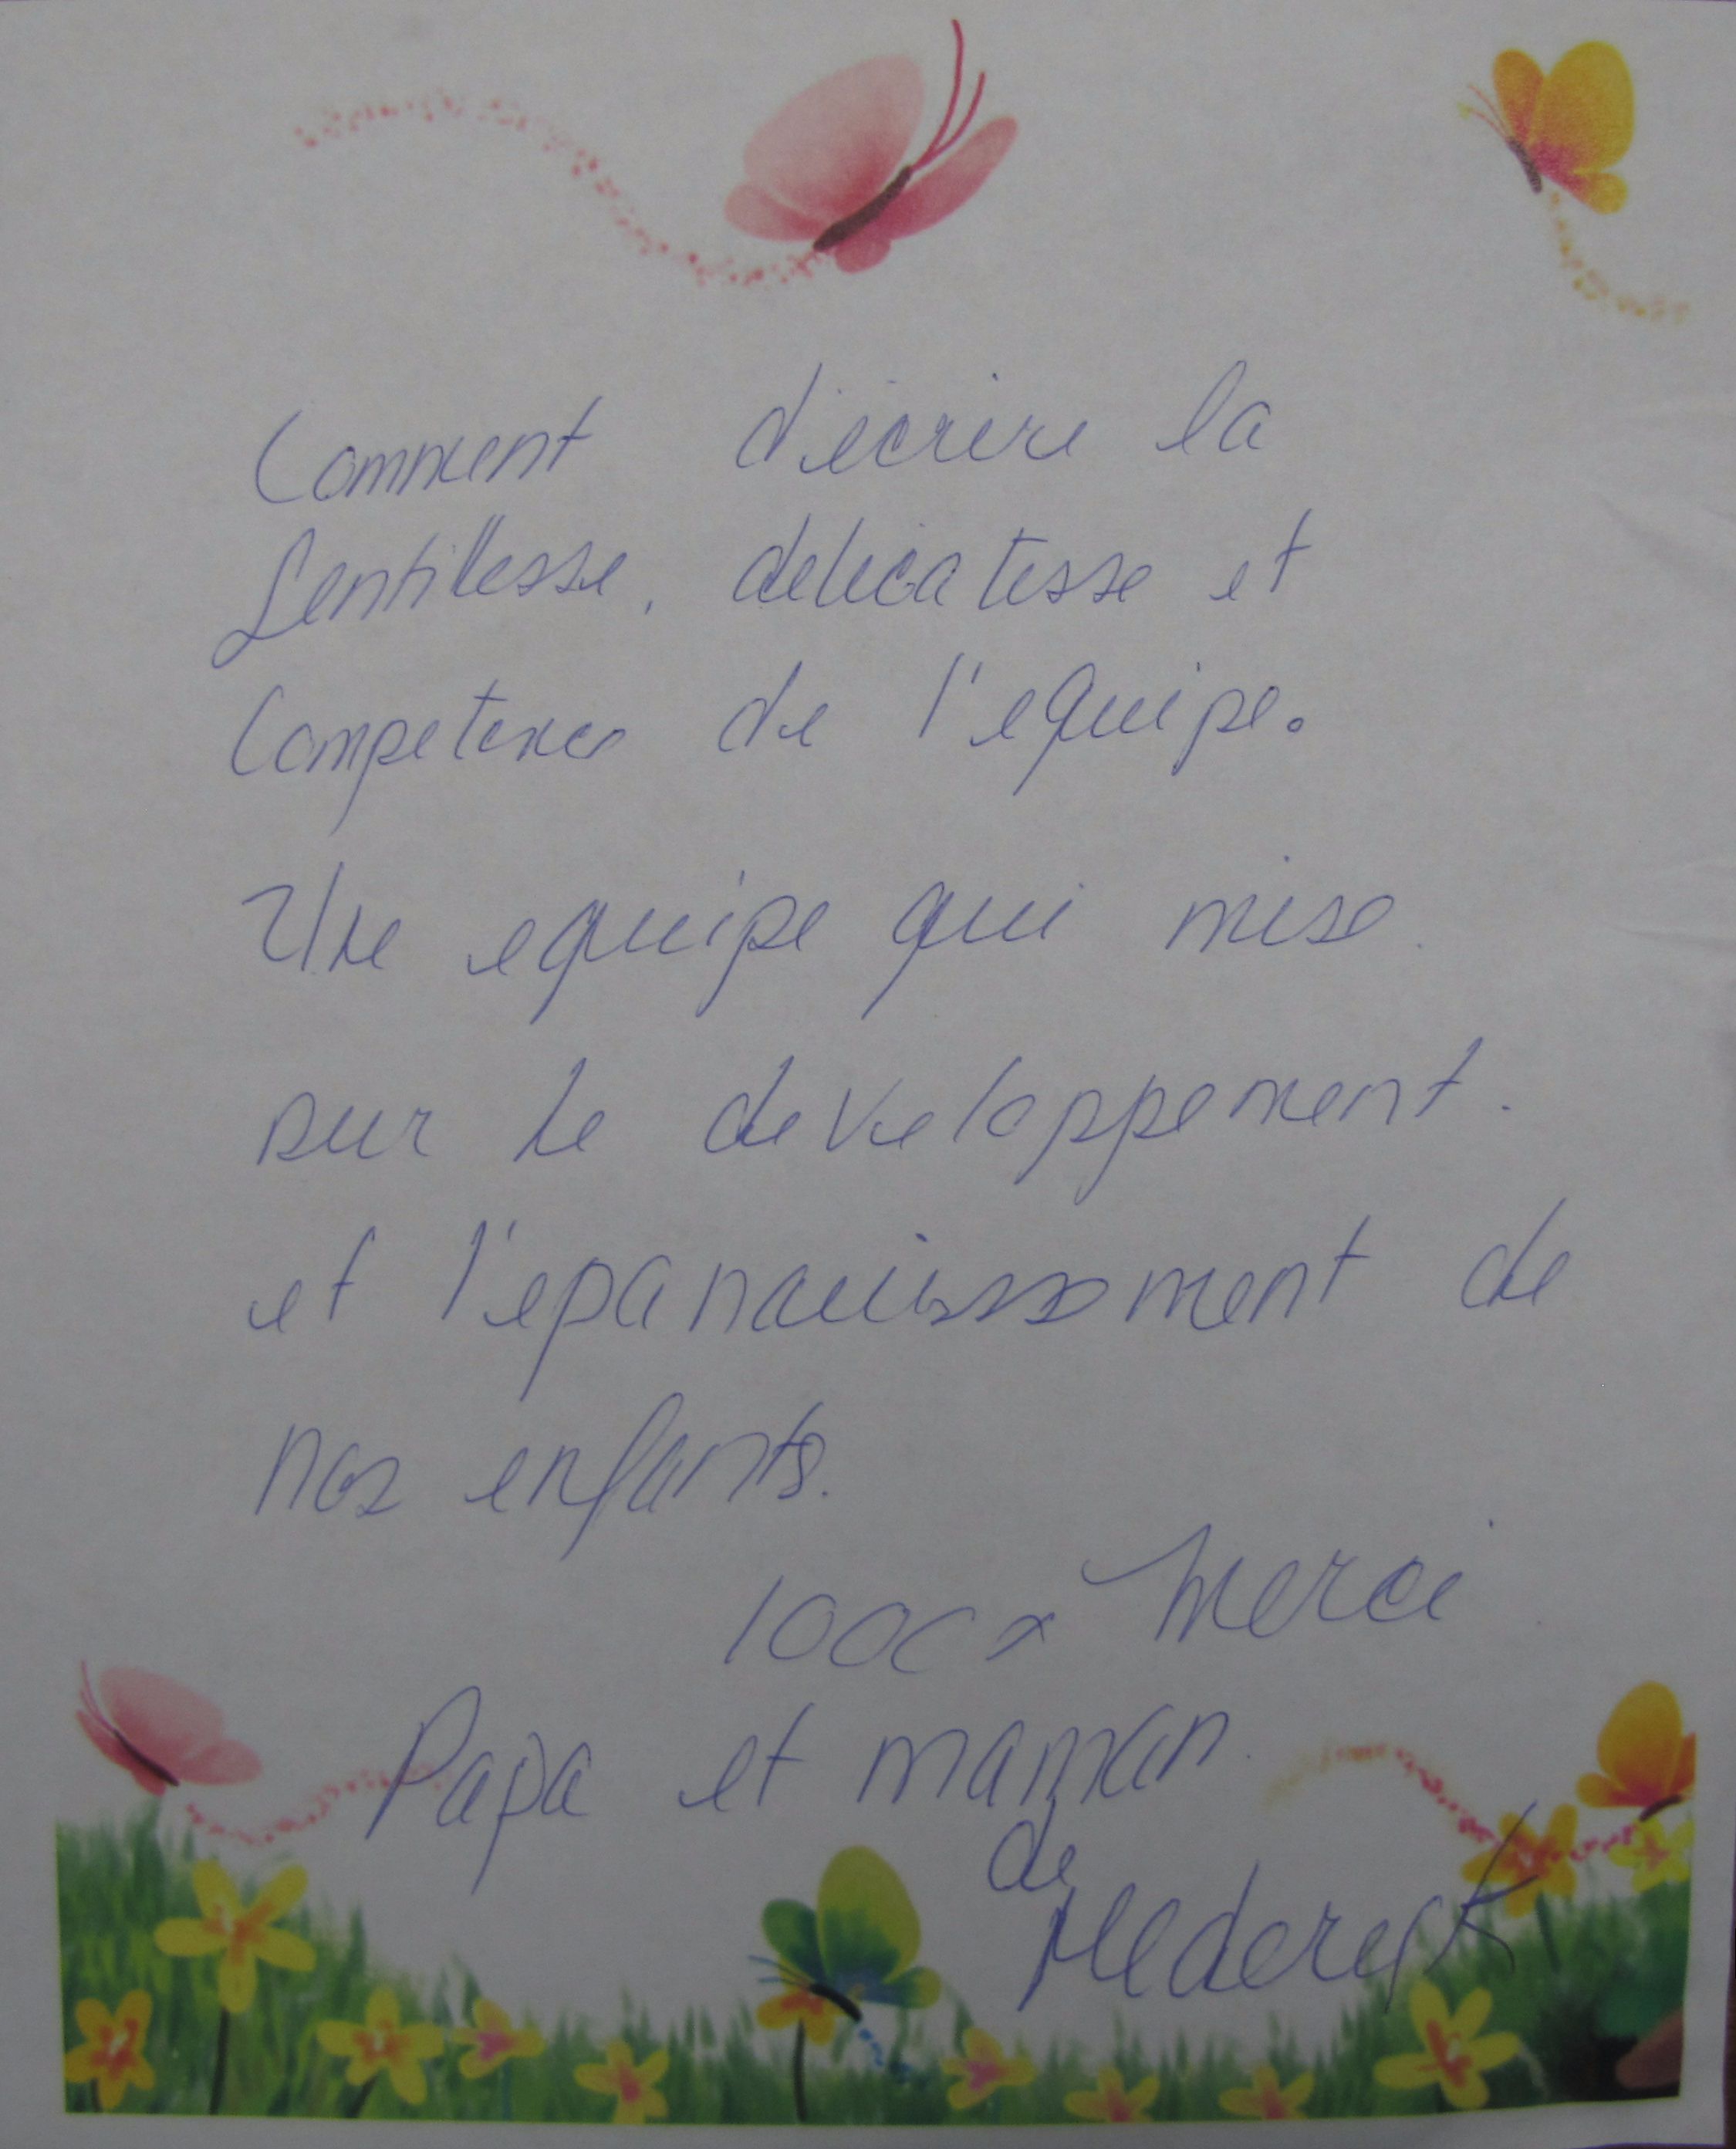 Comment décrire la
Gentillesse, delicatesse et
Competences de l'equipe.
Une equipe qui mise
sur le developpement.
et l'epanouissement de
nos enfants.
1000 x Merci
Papa et maman
de